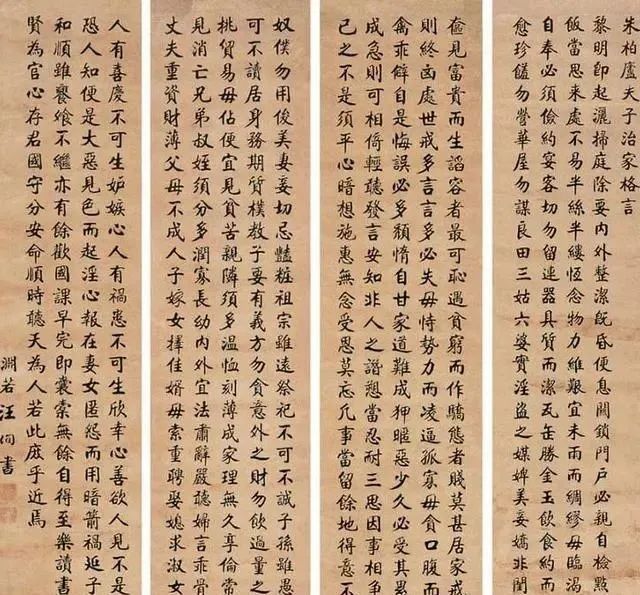 朱柏廬夫子治家格言
黎明即起灑掃庭除要內外整潔既昏便息關鎖門戶必親自檢點
飯當思來處不易半絲半縷恆念物力維艱宜未雨而綢繆毋臨渴
自奉必須儉約宴客切勿留連器具質而潔瓦缶勝金玉飲食約而
愈珍饈勿營華屋勿謀良田三姑六婆實淫盜之媒婢美妾嬌非閨
奩見富貴而生諂容者最可恥遇貧窮而作驕態者賤莫甚居家戒
則終凶處世戒多言言多必失毋恃勢力而凌逼孤寡毋貪口腹而
禽乖僻自是悔誤必多頹惰自甘家道難成狎暱惡少久必受其累
成急則可相倚輕聽發言安知非人之譖愬當忍耐三思因事相爭
己之不是須平心暗想施惠無念受恩莫忘凡事當留餘地得意不
奴僕勿用俊美妻妾切忌豔粧祖宗雖遠祭祀不可不誠子孫雖愚
可不讀居身務期質樸教子要有義方勿貪意外之財勿飲過量之
挑貿易毋佔便宜見貧苦親隣須多溫恤刻薄成家理無久享倫常
見消亡兄弟叔姪須分多潤寡長幼內外宜法肅辭嚴聽婦言乖骨
丈夫重資財薄父母不成人子嫁女擇佳婿毋索重聘娶媳求淑女
人有喜慶不可生妒嫉心人有禍患不可生欣幸心善欲人見不是
恐人知便是大惡見色而起淫心報在妻女匿怨而用暗箭禍延子
和順雖饔飧不繼亦有餘歡國課早完即囊橐無餘自得至樂讀書
賢為官心存君國守分安命順時聽天為人若此庶乎近焉
淵若汪洵書